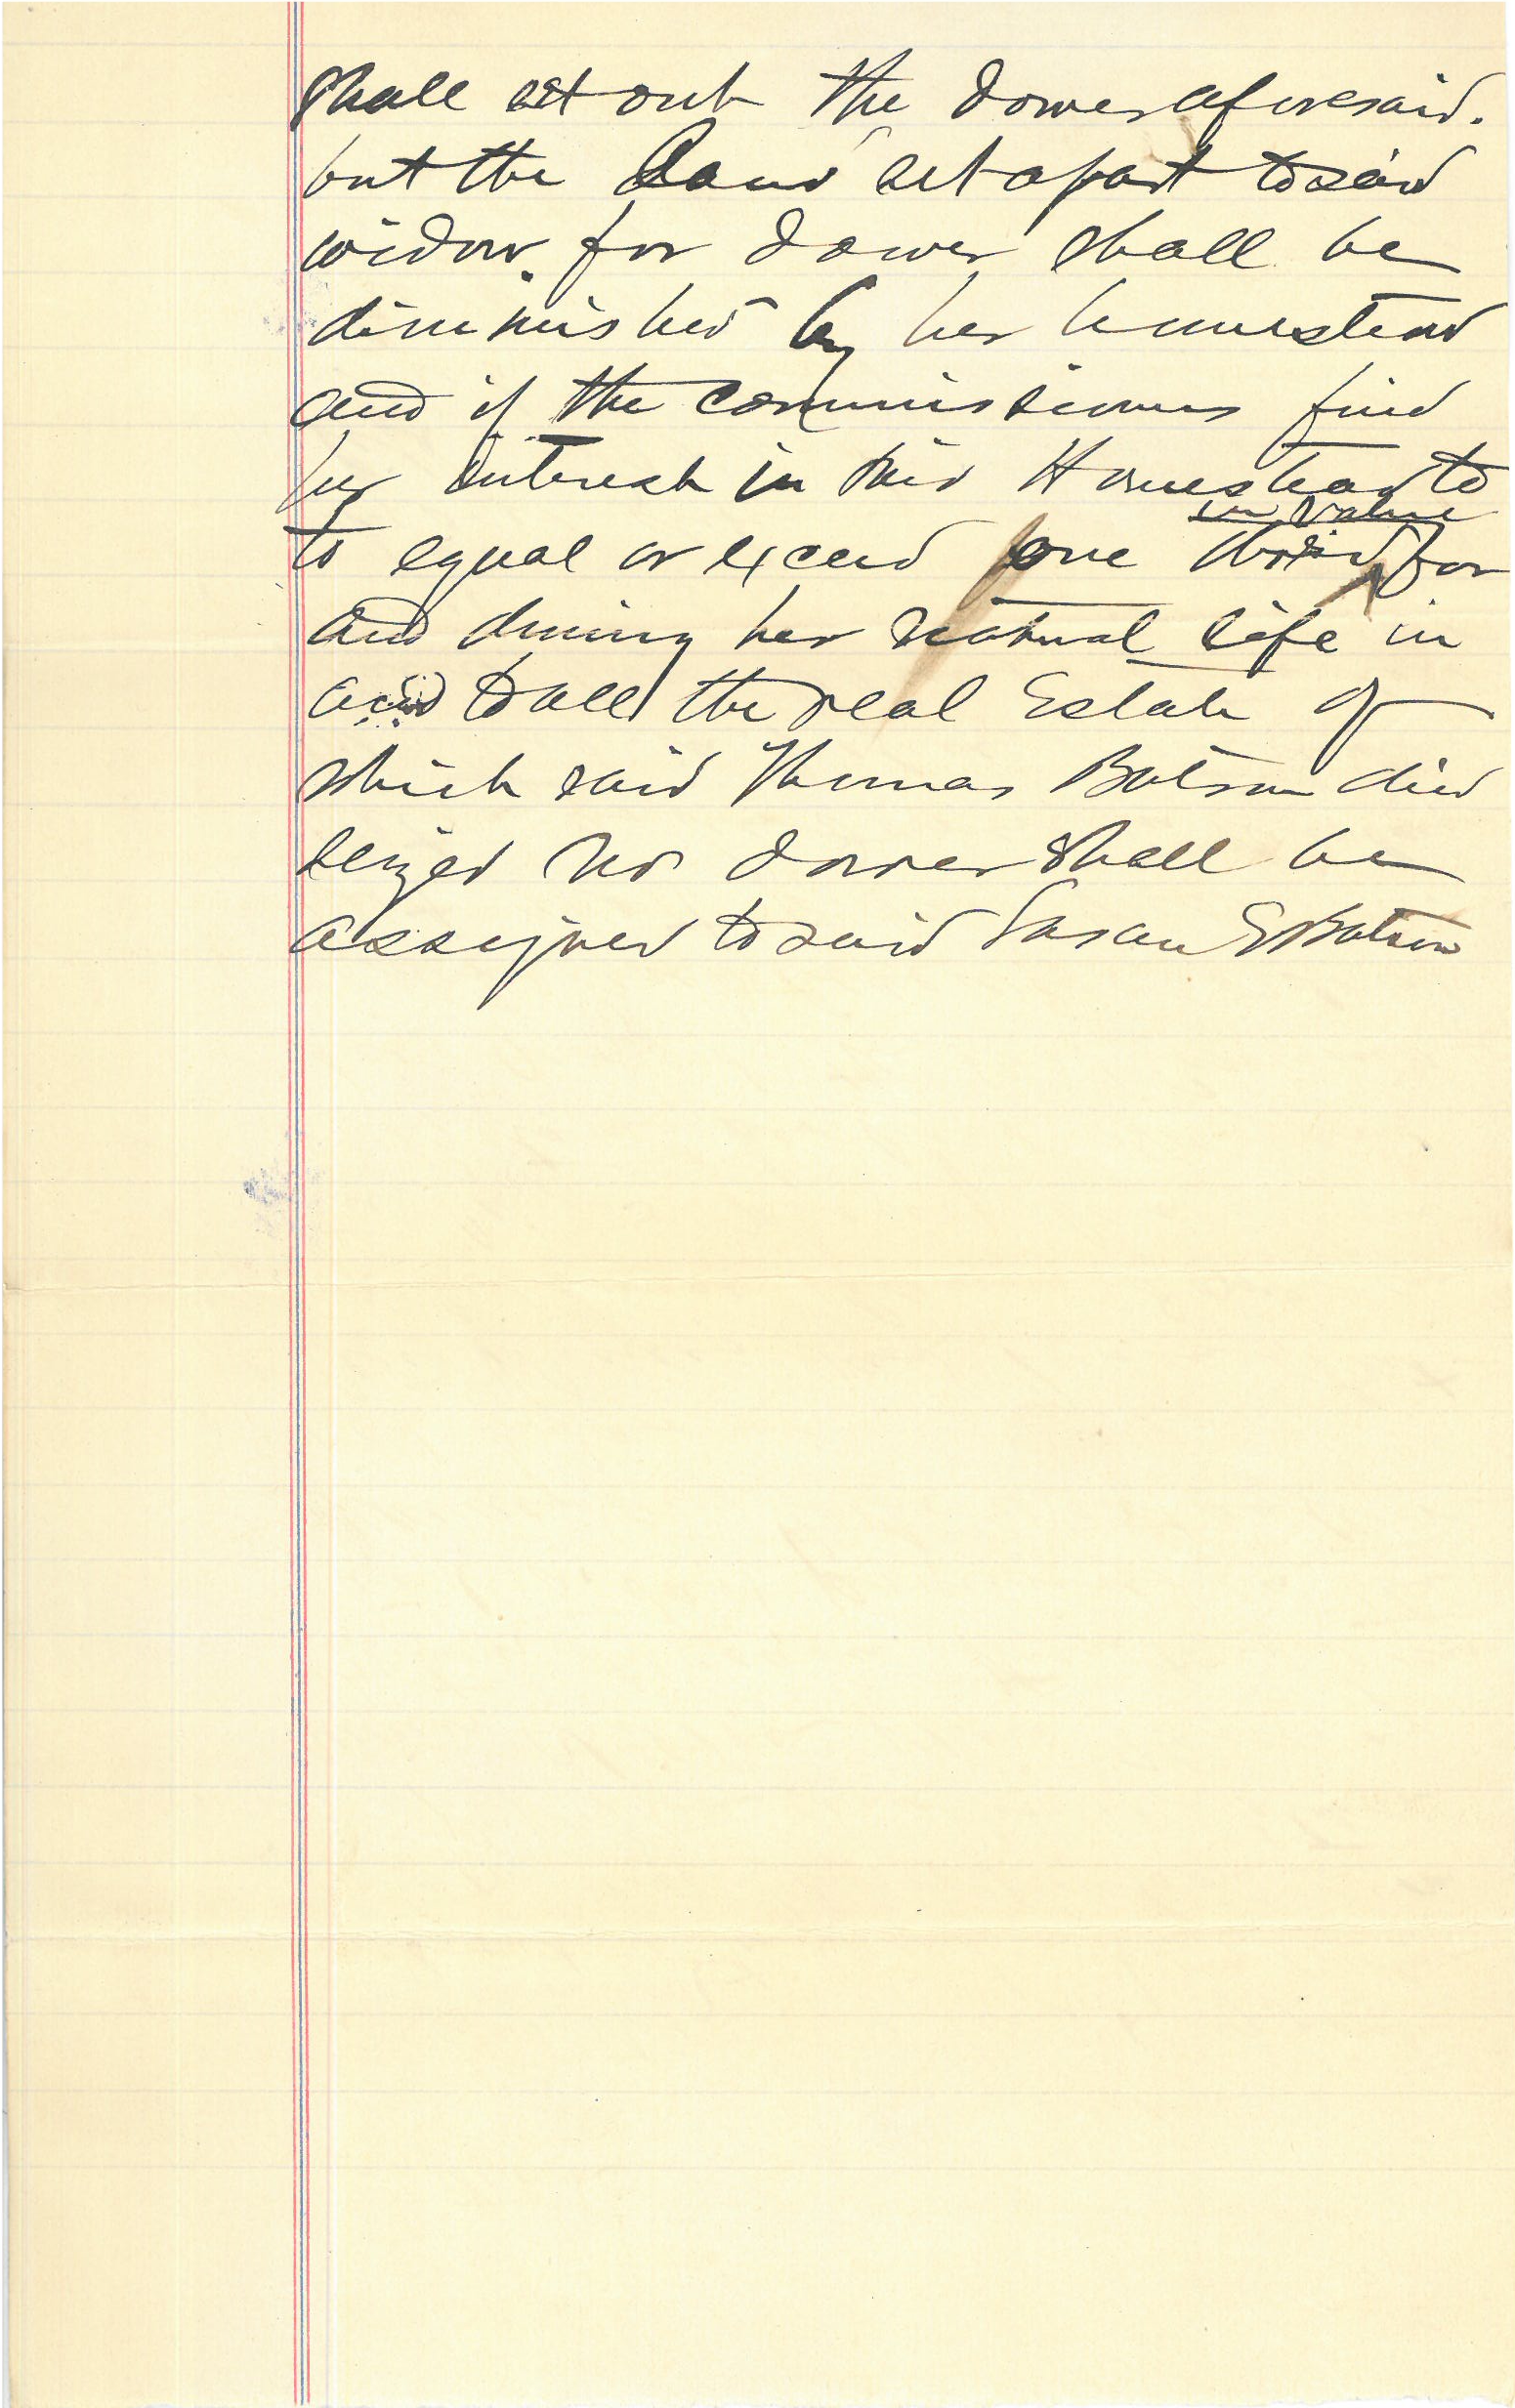 shall set out the dower aforesaid.
but the land set apart to said
widow for dower shall be
diminished by her homestead
and if the commissioners find
her interest in this Homestead to
in value
to equal or exceed one third for
and during her natural life in
and to all the real Estate of
which said Thomas Batson died
seized no dower shall be
assigned to said Susan E Batson